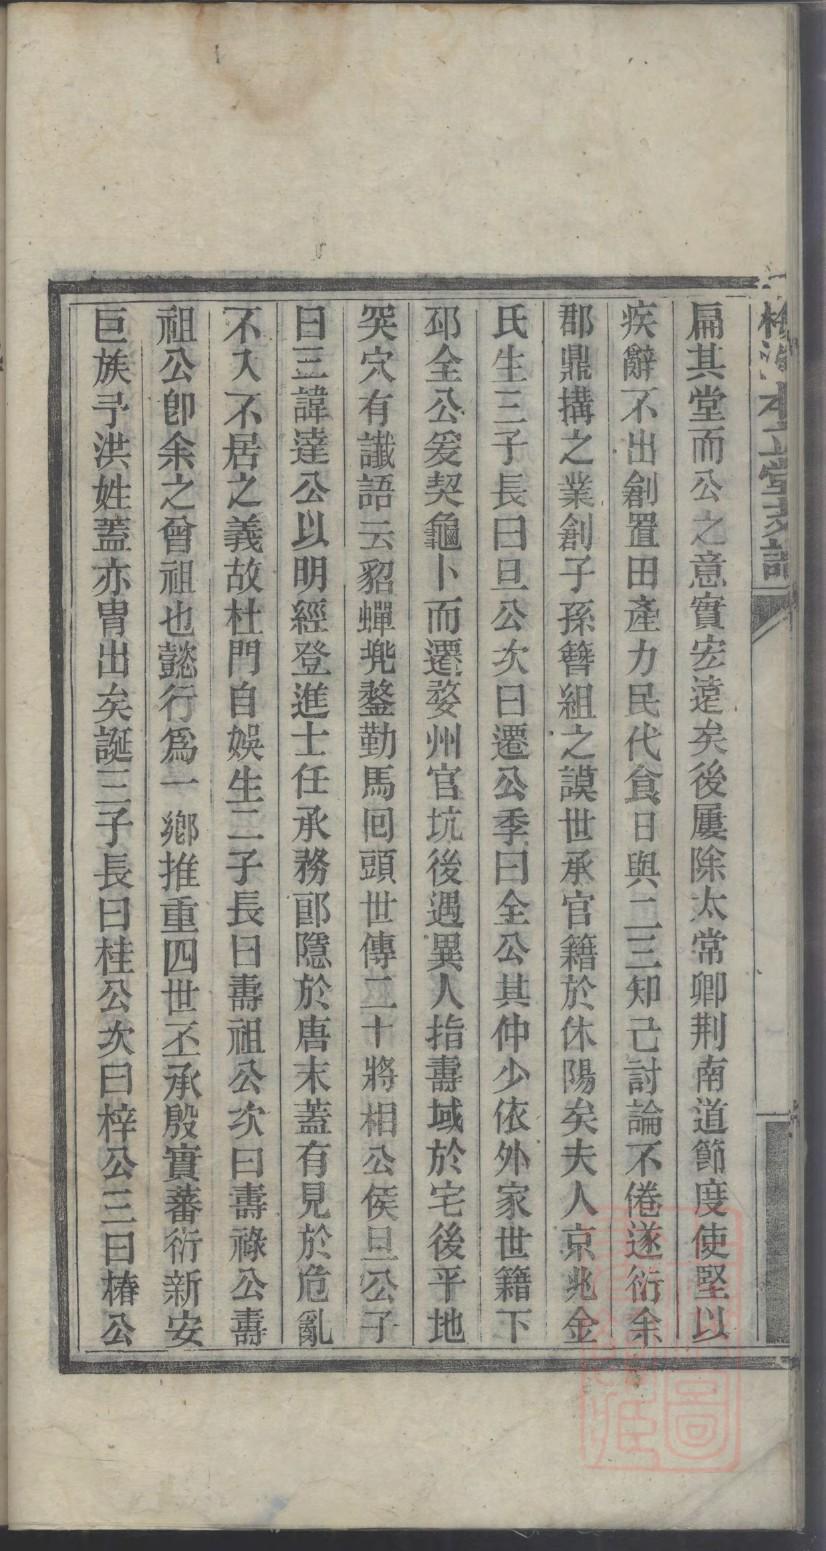 扁其堂而公之意實宏遠矣後屢除太常卿荆南道節度使堅以
疾辭不出創置田產力民代食日與二三知己討論不倦遂衍余
郡鼎搆之業創子孫簪組之謨世承官籍於休陽矣夫人京兆金
氏生三子長曰旦公次曰遷公季曰全公其仲少依外家世籍下
邳全公爰契龜卜而遷婺州官坑後遇異人指壽域於宅後平地
突穴有讖語云貂蟬兠鍪勤馬回頭世傳二十將相公侯旦公子
曰三諱達公以明經登進士任承務郎隱於唐末蓋有見於危亂
不入不居之義故杜門自娛生二子長曰壽祖公次曰壽祿公壽
祖公卽余之曾祖也懿行爲一鄉推重四世丕承殷實蕃衍新安
巨族予洪姓蓋亦冑出矣誕三子長曰桂公次曰梓公三曰椿公